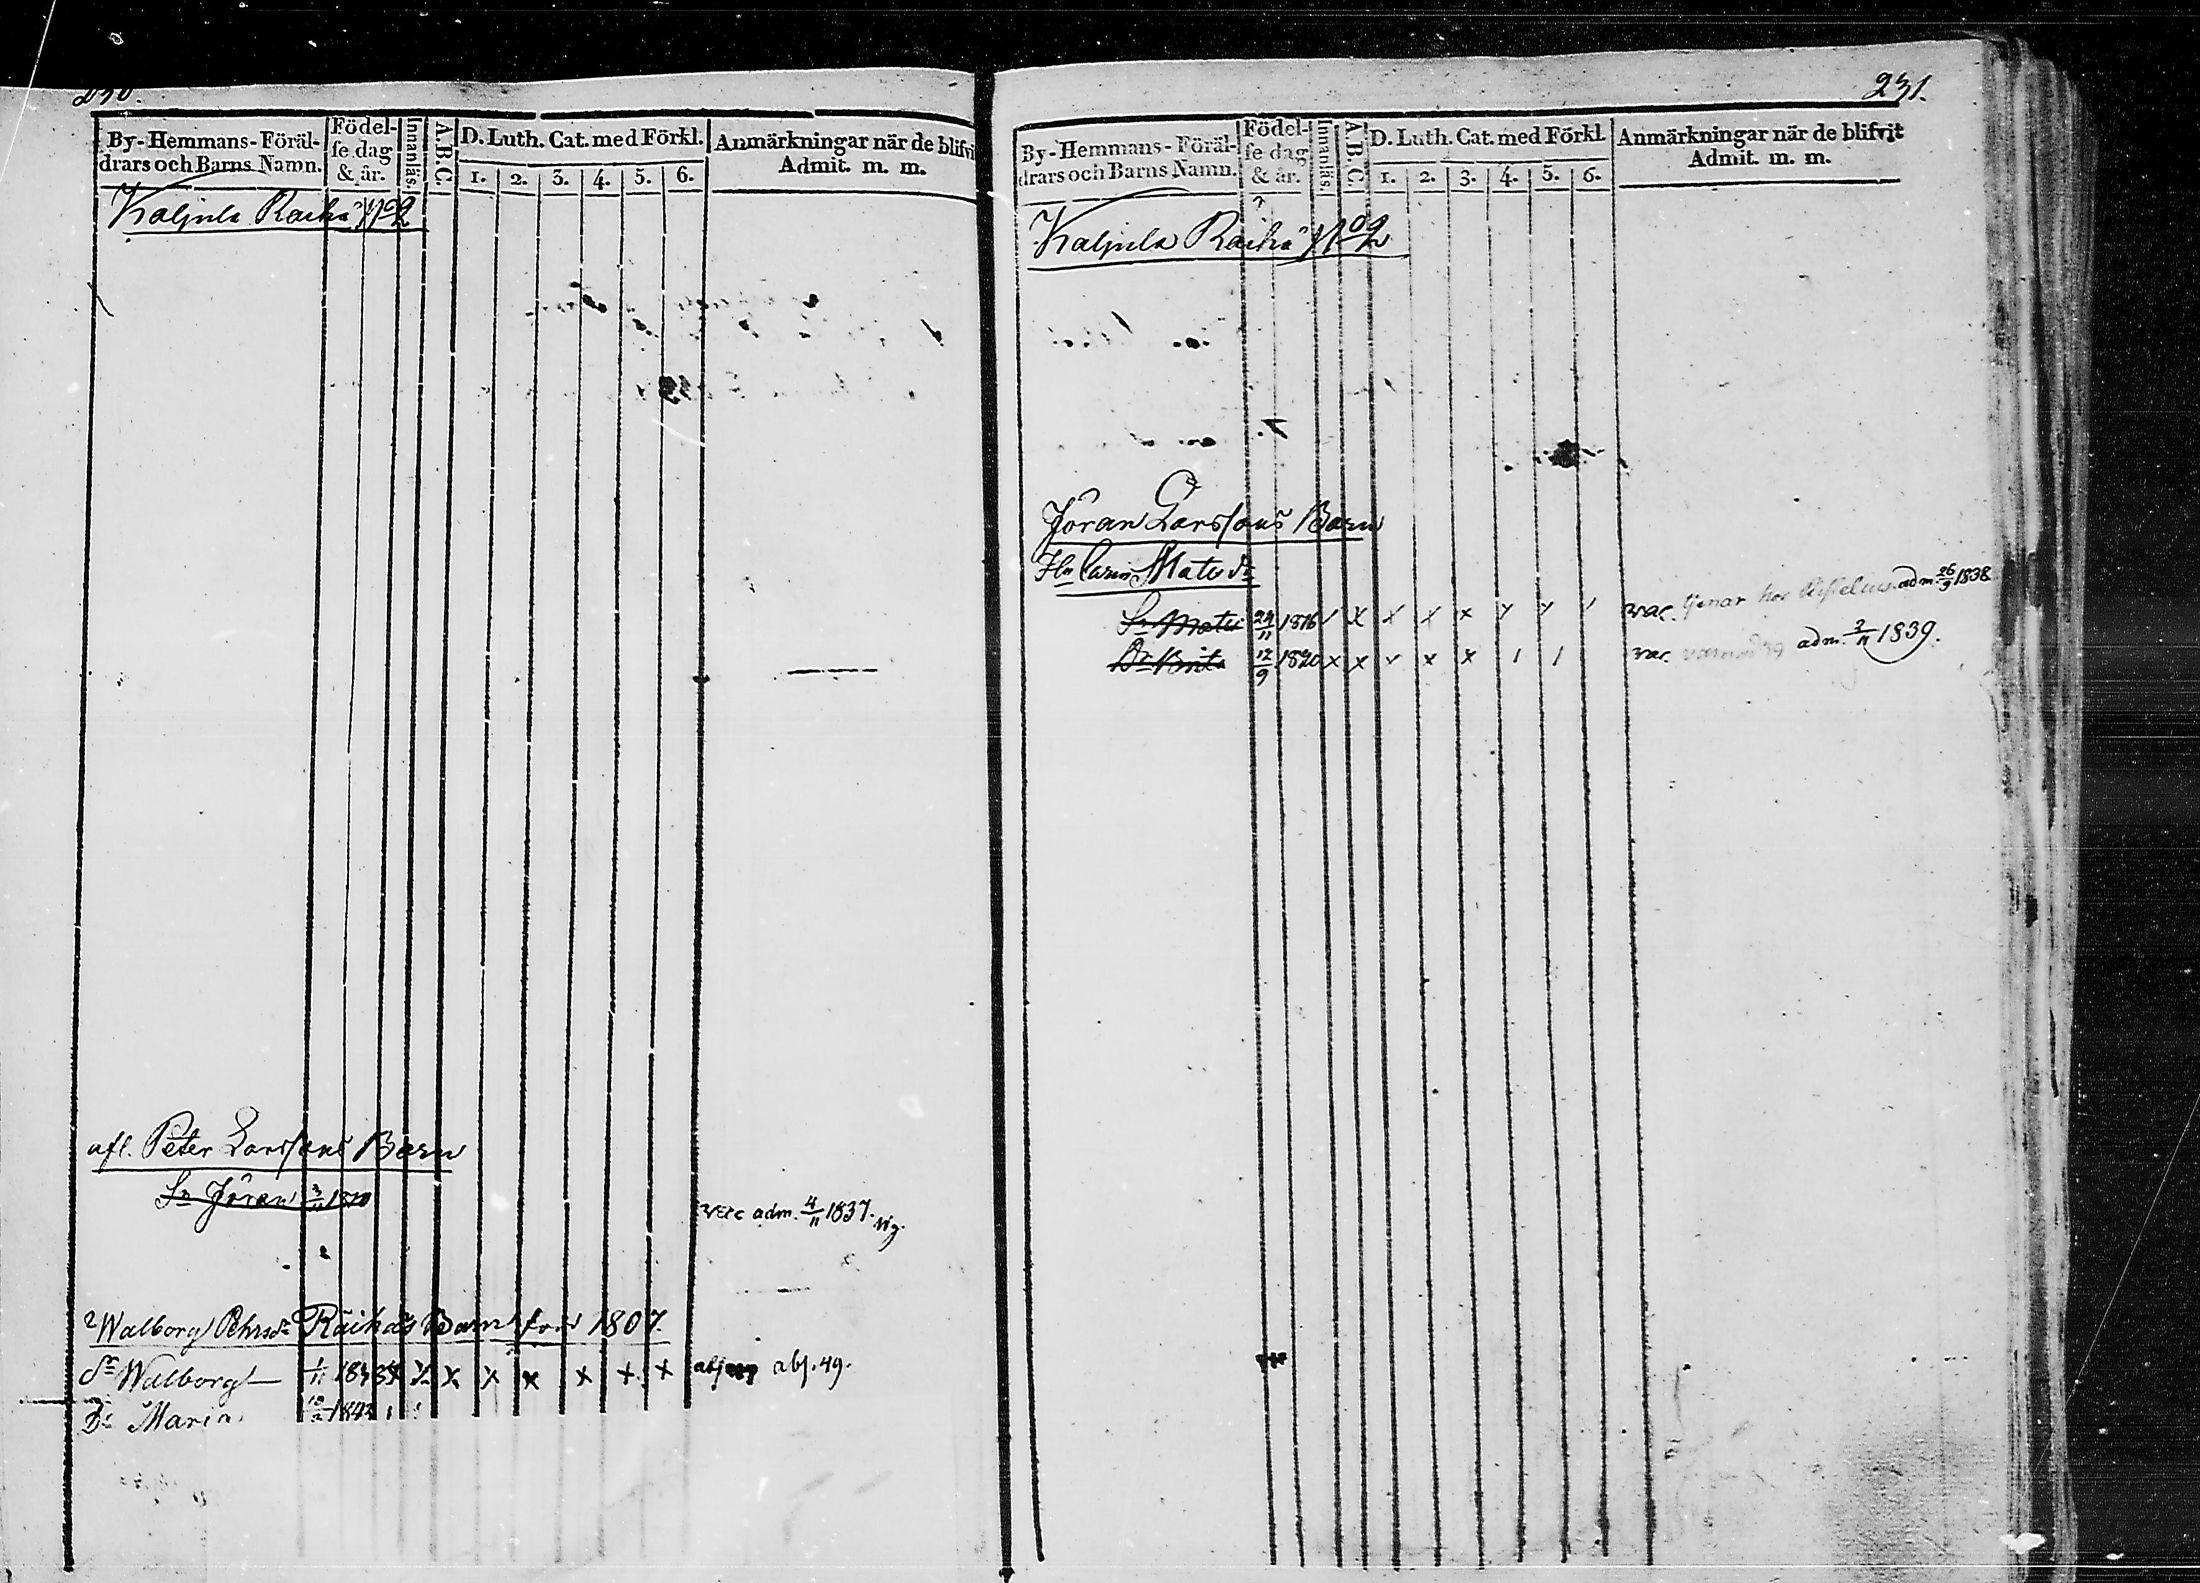 230.
By-Hemmans-Föräl-
drars och Barns Namn.
Födel-
se dag
& år.
Innanläs.
A.B.C.
D. Luth. Cat. med Förkl.
1. 2. 3. 4. 5. 6.
Anmärkningar när de blifvi
Admit. m. m.
Kaljula Raihä No 2
afl. Peter Larssons Barn
Sn Jöran 3/11 1820
vac adm. 4/11 1837.
Walborg Pehrsdr Räihäs Barn 1807.
Walborg 1/11 x x x x x x x abj. 49.
Dr Maria
231.
By-Hemmans-Föräl-
drars och Barns Namn.
Födel-
se dag
& år.
Innanläs.
A.B.C.
D. Luth. Cat. med Förkl.
1. 2. 3. 4. 5. 6.
Anmärkningar när de blifvit
Admit. m. m.
Kaljula Raihä No 2
Jöran Larssons Barn
Hu Carin Matsdr
Sn Mats 24/11 1816 / x x x x y y / vac. tjenar hos adm. 26/9 1838
Dr Brita 12/9 1820 x x x x x / / vac. adm. 3/11 1839.